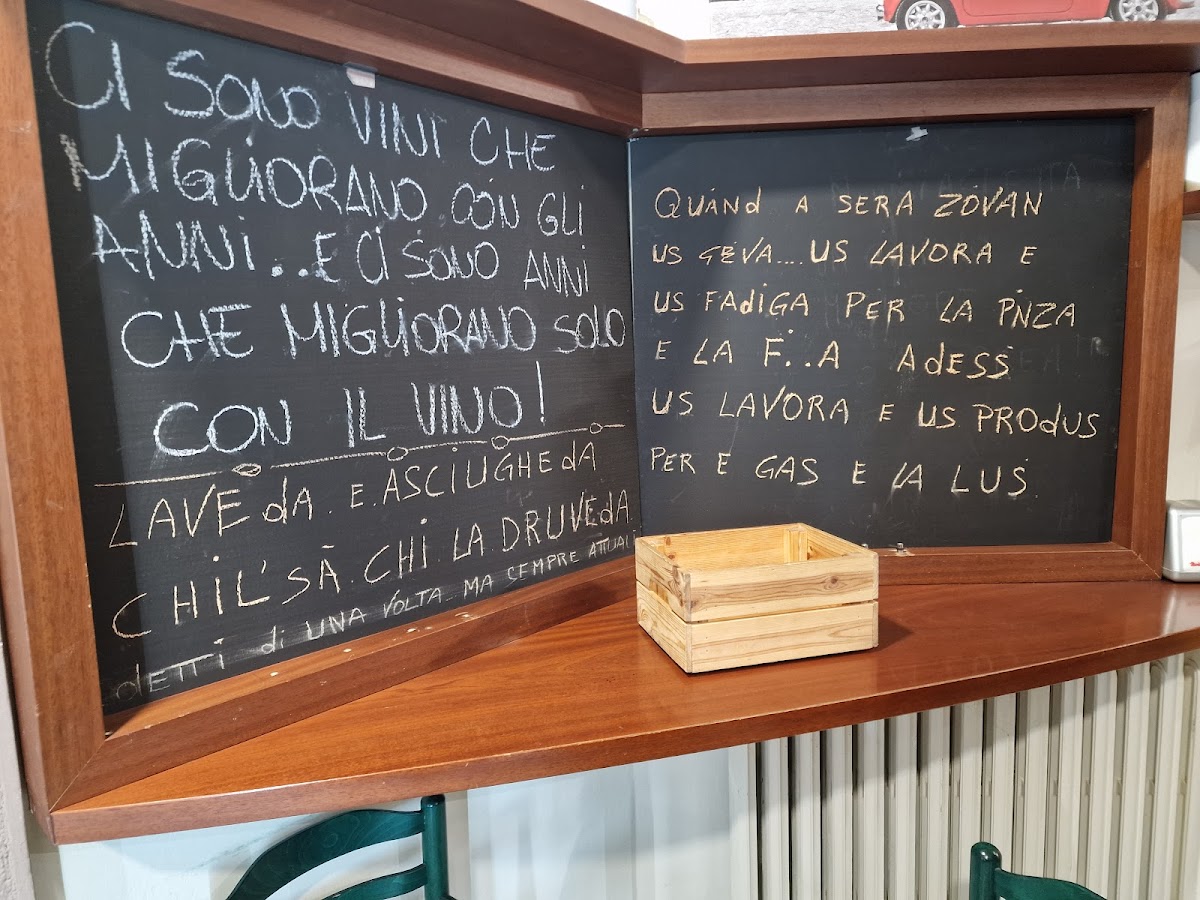 CI SONO VINI CHE
MIGLIORANO CON GLI
ANNI...E CI SONO ANNI
CHE MIGLIORANO SOLO
CON IL VINO!
LAVEdA. E. ASCIUGHEdA
CHIL'SÀ. CHI. LA. DRUVEdA.
dETTi di UNA VOLTA.. MA SEMPRE ATTUALI
QUANd A SERA ZOVAN
US GEVA.... US LAVORA E
US FAdiGA PER LA PNZA
E LA F...A AdESS
US LAVORA E US PROdUS
PER E GAS E LA LUS.